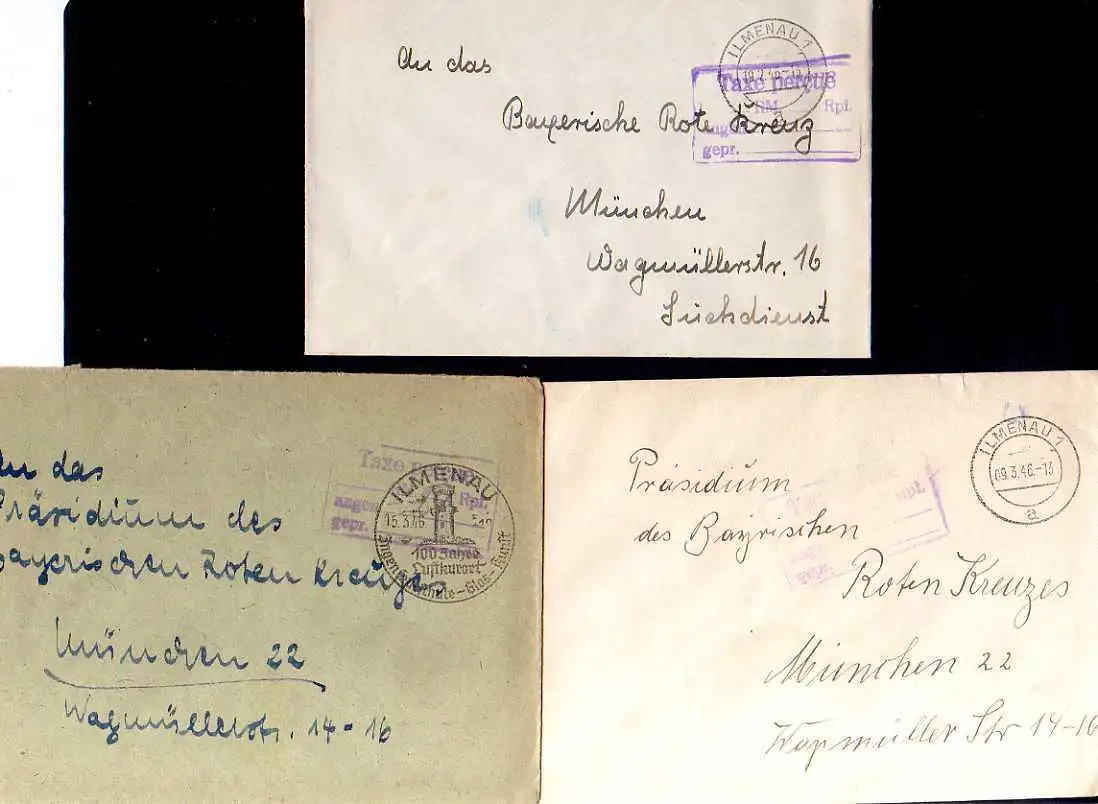 An das
Bayerische Rote Kreuz
München
Wagmüllerstr. 16
Suchdienst
ILMENAU 1
a
Taxe perçue
RM Rpf.
gepr.
An das
Präsidium des
Bayerischen Roten Kreuzes
München 22
Wagmüllerstr. 14-16
Taxe
Rpf.
angen
gepr.
ILMENAU
15.3.46
100 Jahre
Luftkurort
Präsidium
des Bayrischen
Roten Kreuzes
München 22
Wagmüller Str 14-16
ILMENAU 1
09.3.46.-13
a